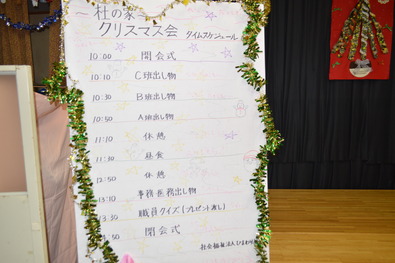 杜の家
クリスマス会 タイムスケジュール
10:00 開会式
10:10 C班出し物
10:30 B班出し物
10:50 A班出し物
11:10 休憩
11:30 昼食
12:50 休憩
13:10 事務医務出し物
13:30 職員クイズ(プレゼント渡し)
:50 閉会式
社会福祉法人ひまわり